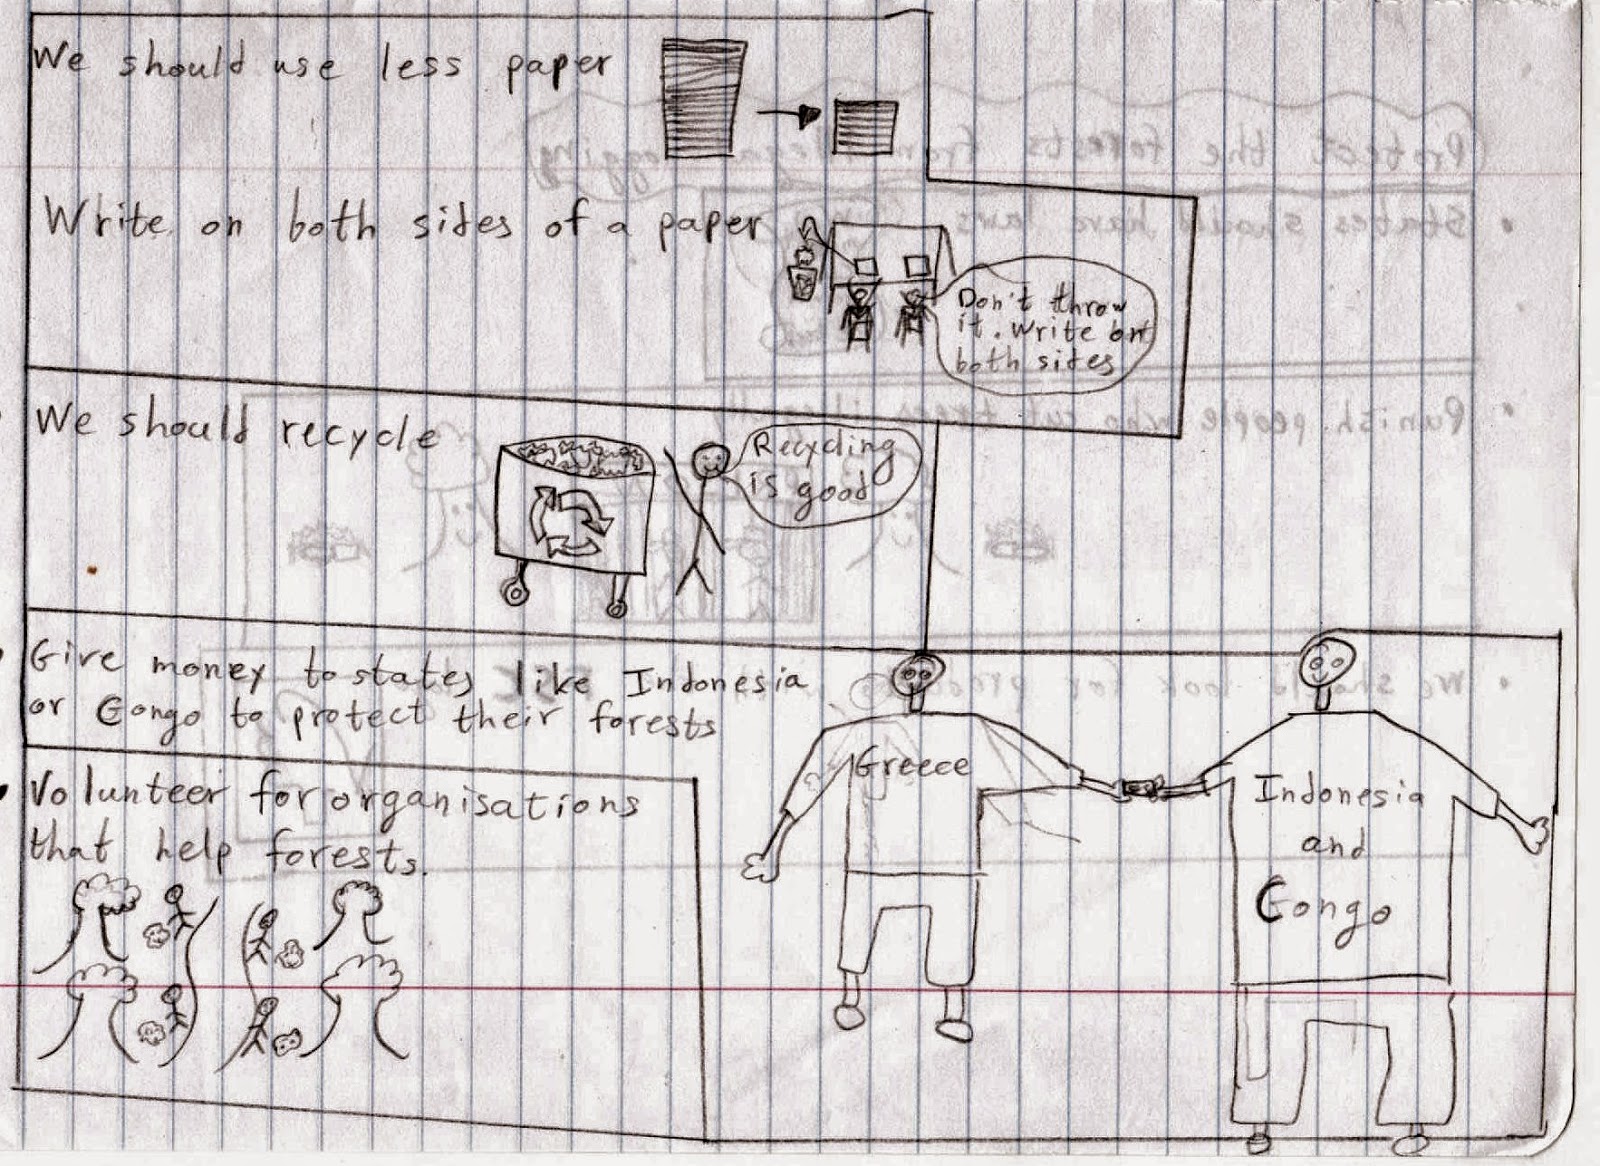 We should use less paper
Write on both sides of a paper
Don't throw
it. Write on
both sides
We should recycle
Recycling
is good
Give money to states like Indonesia
or Congo to protect their forests
Greece
Indonesia
and
Congo
Volunteer for organisations
that help forests.